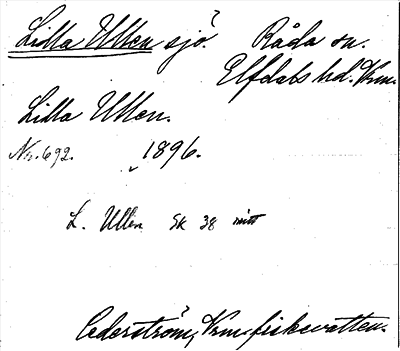 Lilla Ullen sjö? Råda sn.
Elfdals hd. Vrm.
Lilla Ullen.
Nr. 692. 1896.
L. Ullen Sk 38 mitt
Cederström, Vrm. fiskevatten.